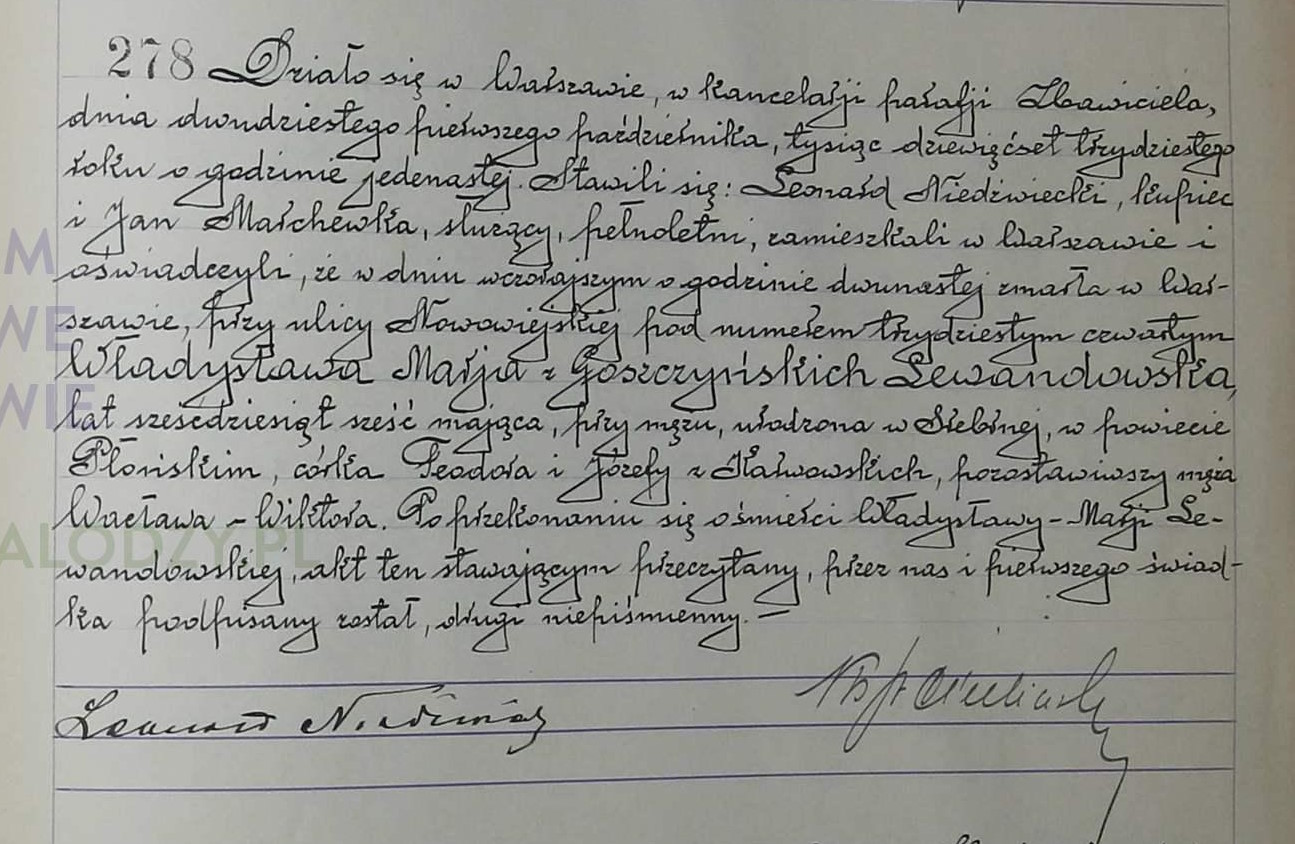 278 Działo się w Warszawie, w kancelarji parafji Zbawiciela,
dnia dwudziestego pierwszego października, tysiąc dziewięćset trzydziestego
roku o godzinie jedenastej. Stawili się: Leonard Niedźwiecki, kupiec
i Jan Marchewka, służący, pełnoletni, zamieszkali w Warszawie i
oświadczyli, że w dniu wczorajszym o godzinie dwunastej zmarła w War-
szawie, przy ulicy Nowowiejskiej pod numerem trzydziestym czwartym
Władysława Marja z Goszczyńskich Lewandowska,
lat sześćdziesiąt sześć mająca, przy mężu, urodzona w Srebrnej, w powiecie
Płońskim, córka Teodora i Józefy z Karwowskich, pozostawiwszy męża
Wacława - Wiktora. Po przekonaniu się o śmierci Władysławy - Marji Le-
wandowskiej, akt ten stawającym przeczytany, przez nas i pierwszego świad-
ka podpisany został, drugi niepiśmienny. —
Leonard
M
WE
WIE
ALODZY.PL